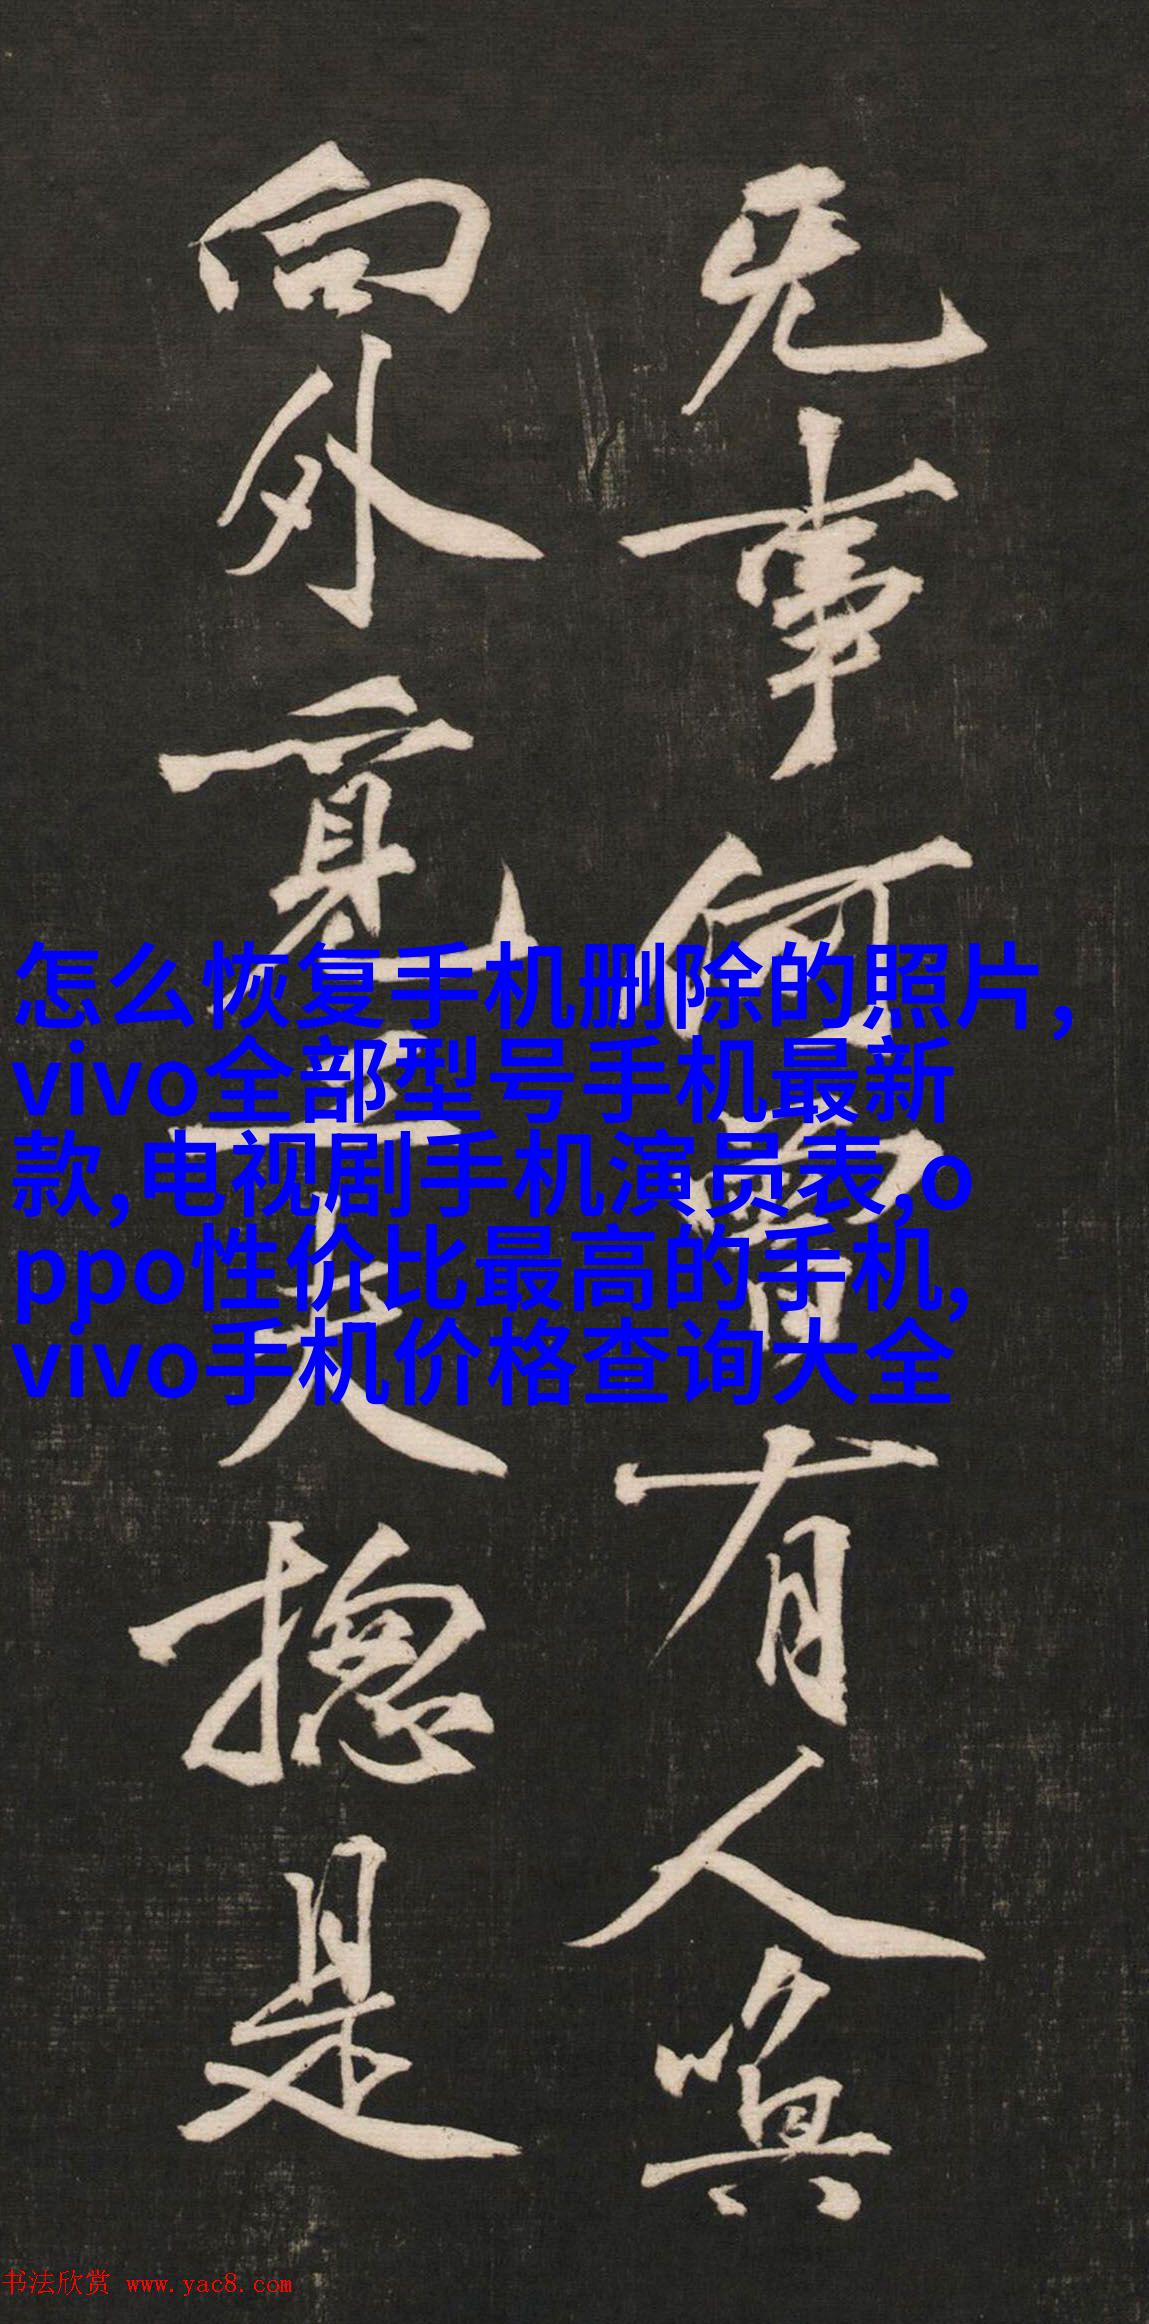 旡事何曾有人喚
向外覓工夫揔是
怎么恢复手机删除的照片,
vivo全部型号手机最新
款,电视剧手机演员表,o
ppo性价比最高的手机,
vivo手机价格查询大全
书法欣赏 www.yac8.com